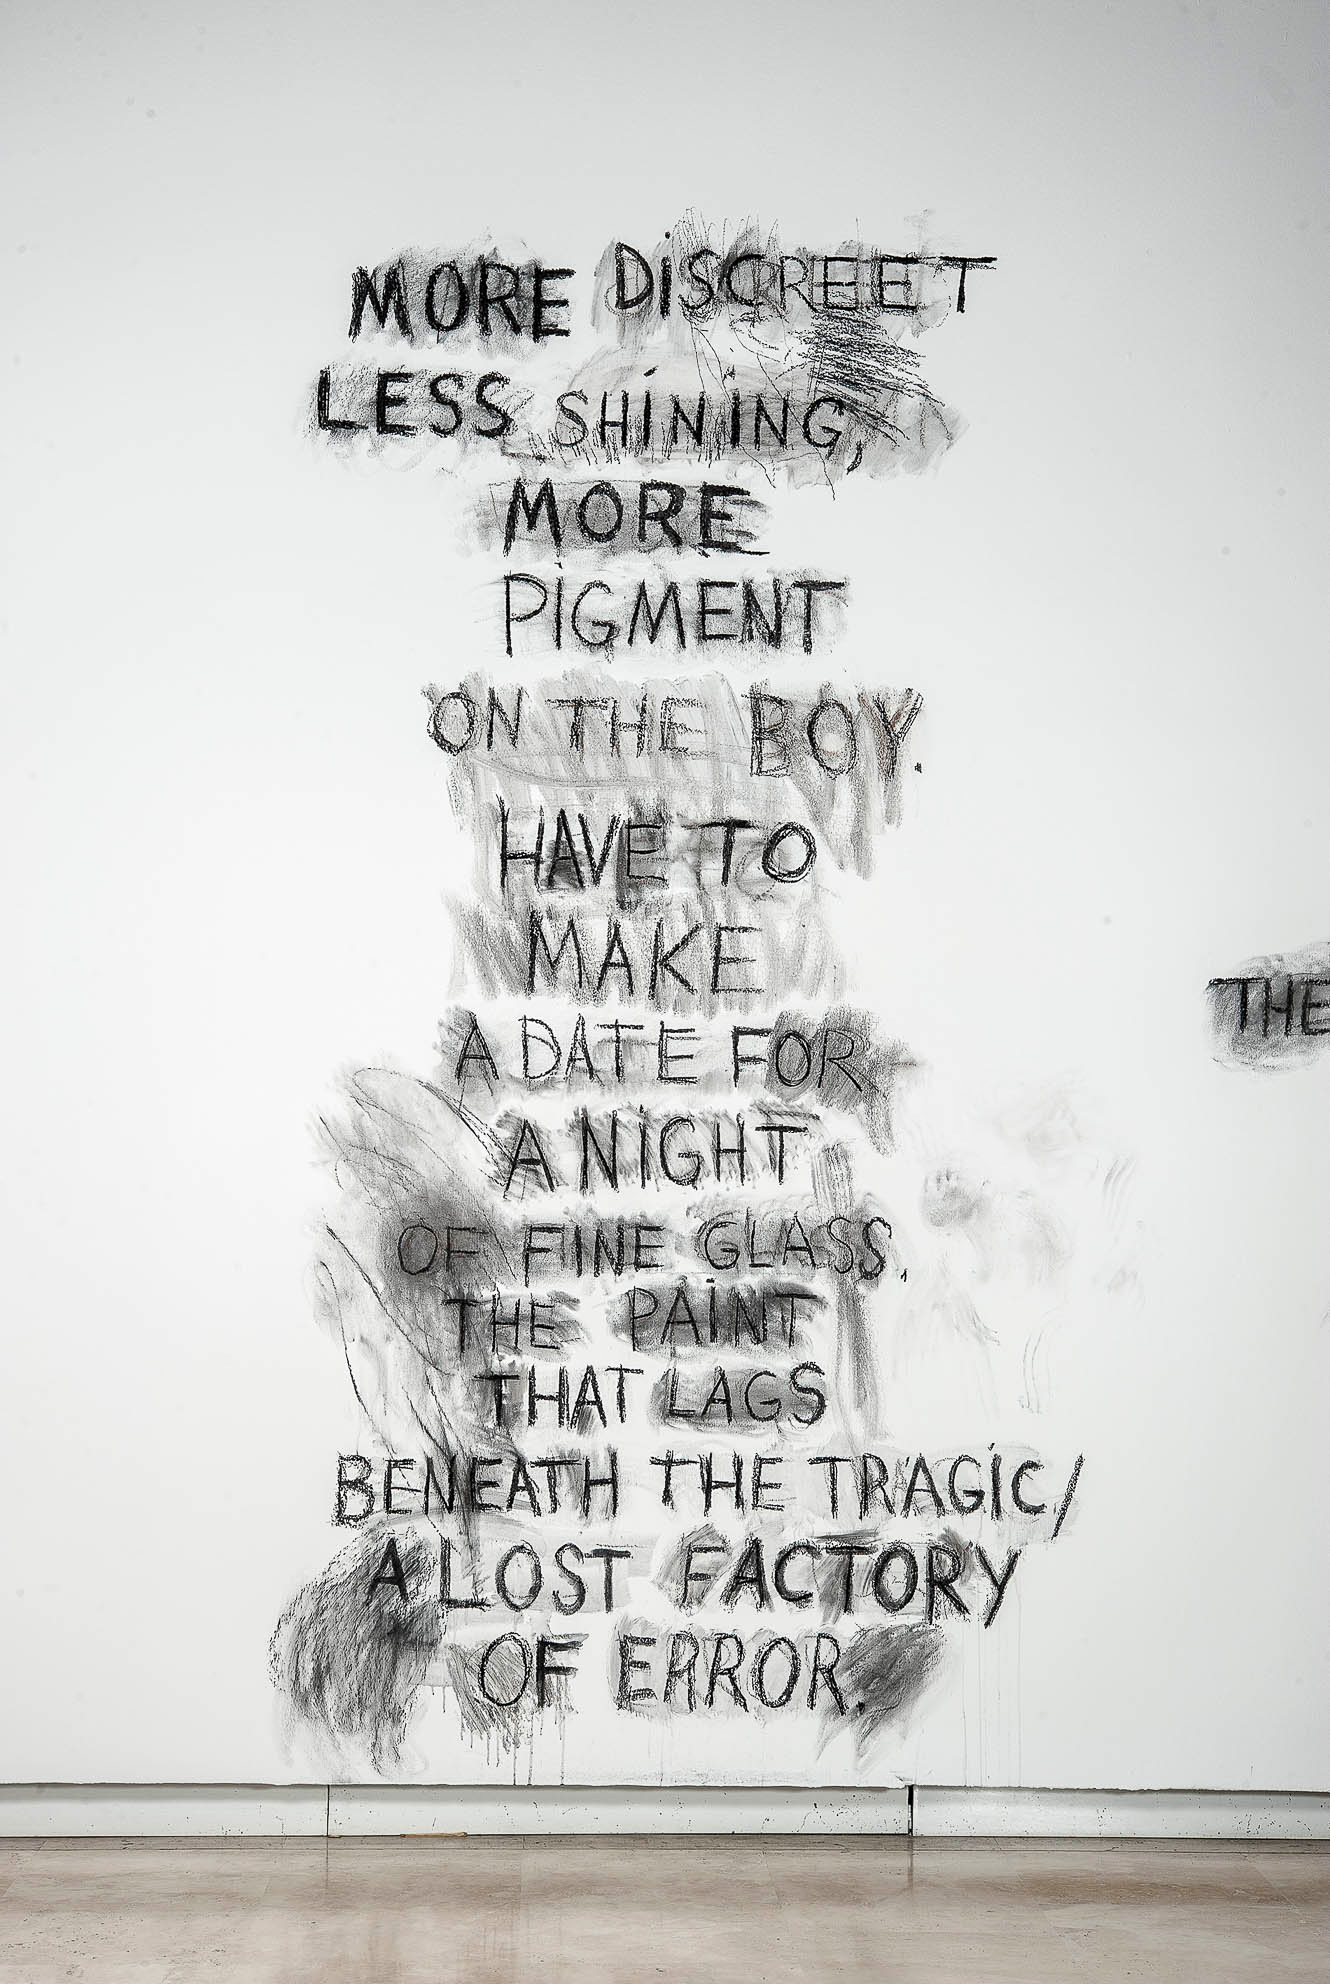 MORE DISCREET
LESS SHINING,
MORE
PIGMENT
ON THE BOY.
HAVE TO
MAKE
A DATE FOR
A NIGHT
OF FINE GLASS.
THE PAINT
THAT LAGS
BENEATH THE TRAGIC/
A LOST FACTORY
OF ERROR.
THE